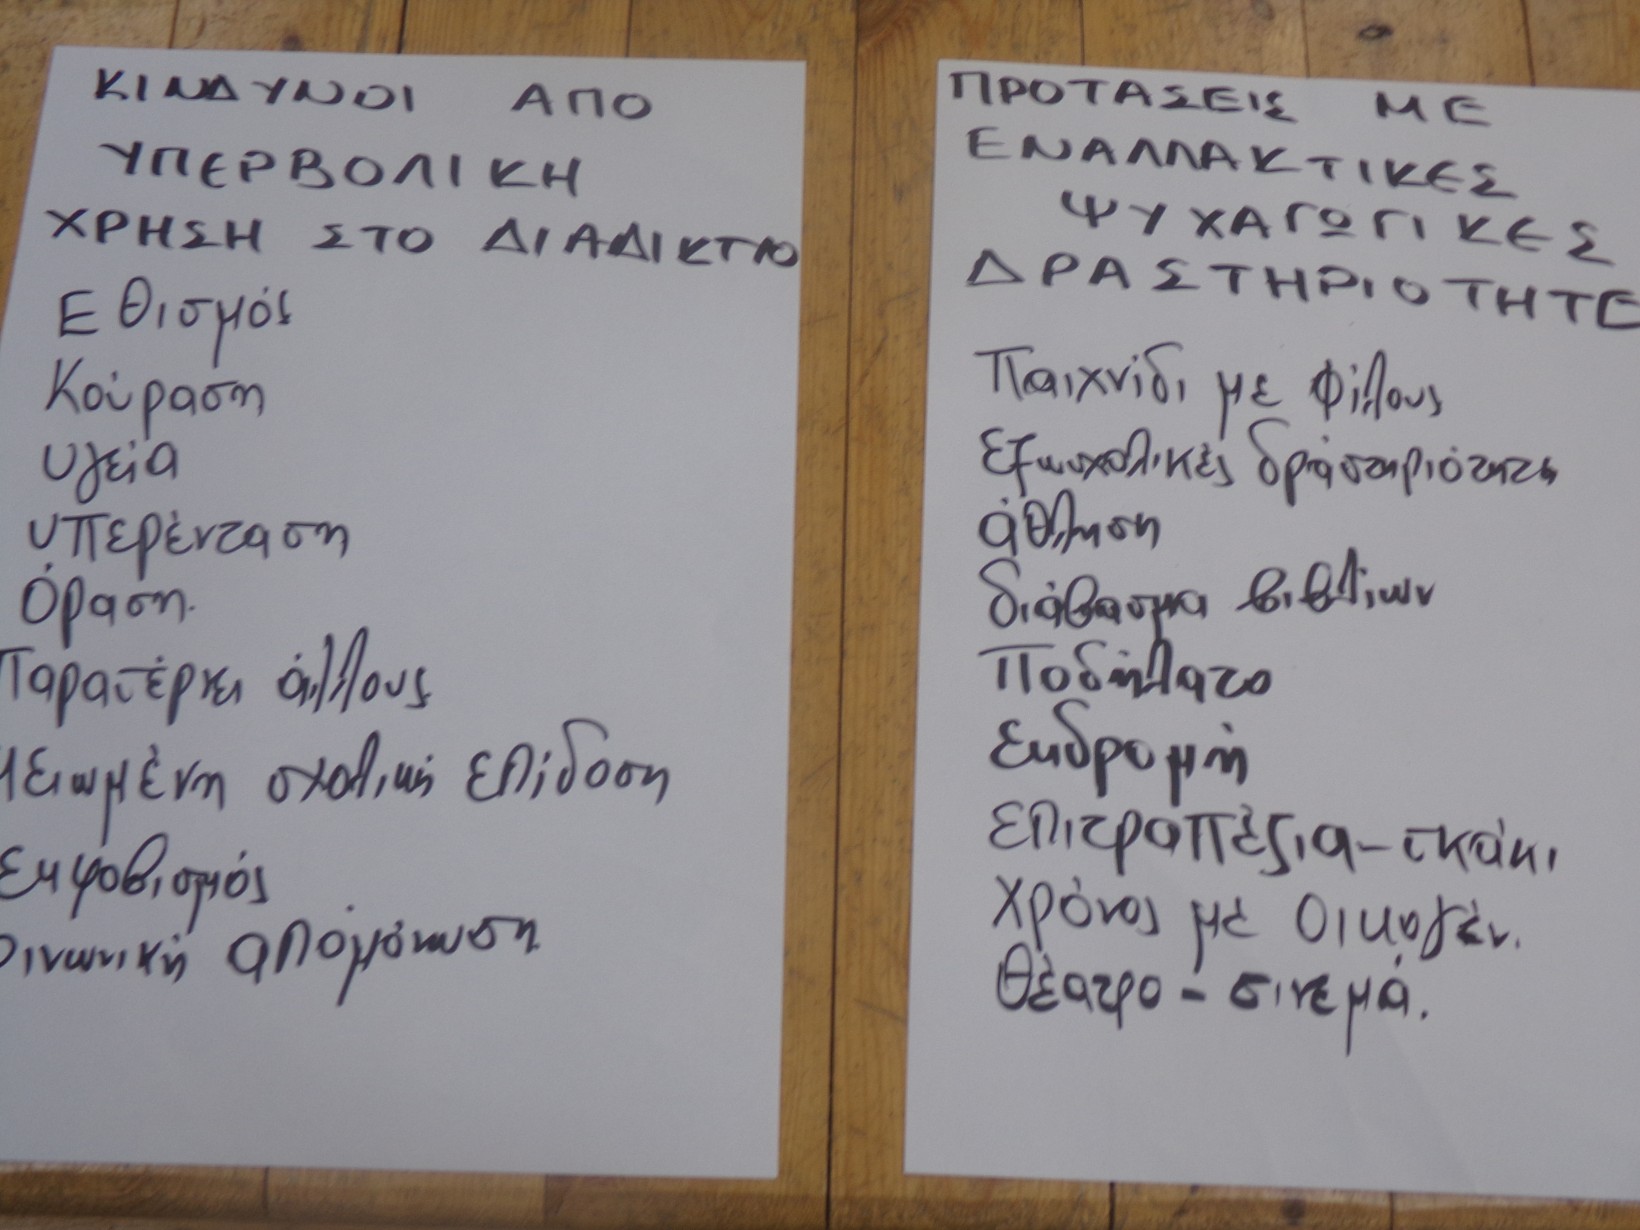 ΚΙΝΔΥΝΟΙ ΑΠΟ
ΥΠΕΡΒΟΛΙΚΗ
ΧΡΗΣΗ ΣΤΟ ΔΙΑΔΙΚΤΥΟ
Εθισμός
Κούραση
υγεία
υπερένταση
Όραση.
Παρατέρνει άλλους
Μειωμένη σχολική επίδοση
εκφοβισμός
οινωνική απομόνωση
ΠΡΟΤΑΣΕΙΣ ΜΕ
ΕΝΑΛΛΑΚΤΙΚΕΣ
ΨΥΧΑΓΩΓΙΚΕΣ
ΔΡΑΣΤΗΡΙΟΤΗΤΕ
Παιχνίδι με φίλους
εξωσχολικές δράστηριότητες
άθληση
διάβασμα βιβλίων
Ποδήλατο
εκδρομή
επιτραπέζια - σκάκι
χρόνος με οικογέν.
θέατρο - σινεμά.